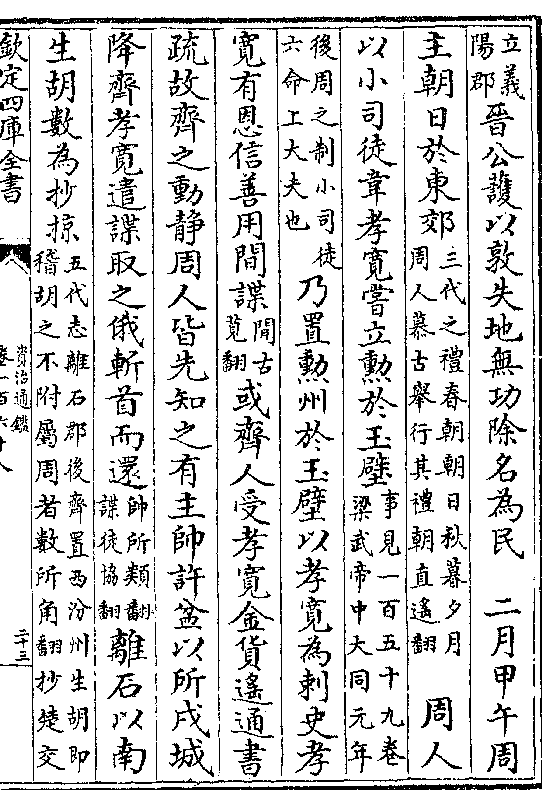 義郡
立陽
晉公護以敦失地無功除名為民　二月甲午周
主朝日於東郊
三代之禮春朝朝日秋暮夕月
周人慕古舉行其禮朝直遙翻
周人
以小司徒韋孝寬嘗立勲於玉壁
事見一百五十九卷
梁武帝中大同元年
後周之制小司徒
六命上大夫也
乃置勲州於玉壁以孝寬為刺史孝
寛有恩信善用間諜
間古
莧翻
或齊人受孝寬金貨遙通書
疏故齊之動静周人皆先知之有主帥許盆以所戍城
降齊孝寬遣諜取之俄斬首而還
帥所類翻
諜徒協翻
離石以南
生胡數為抄掠
五代志離石郡後齊置西汾州生胡即
稽胡之不附屬周者數所角翻抄楚交
欽定四庫全書
資治通鑑
卷一百六十八
二十三